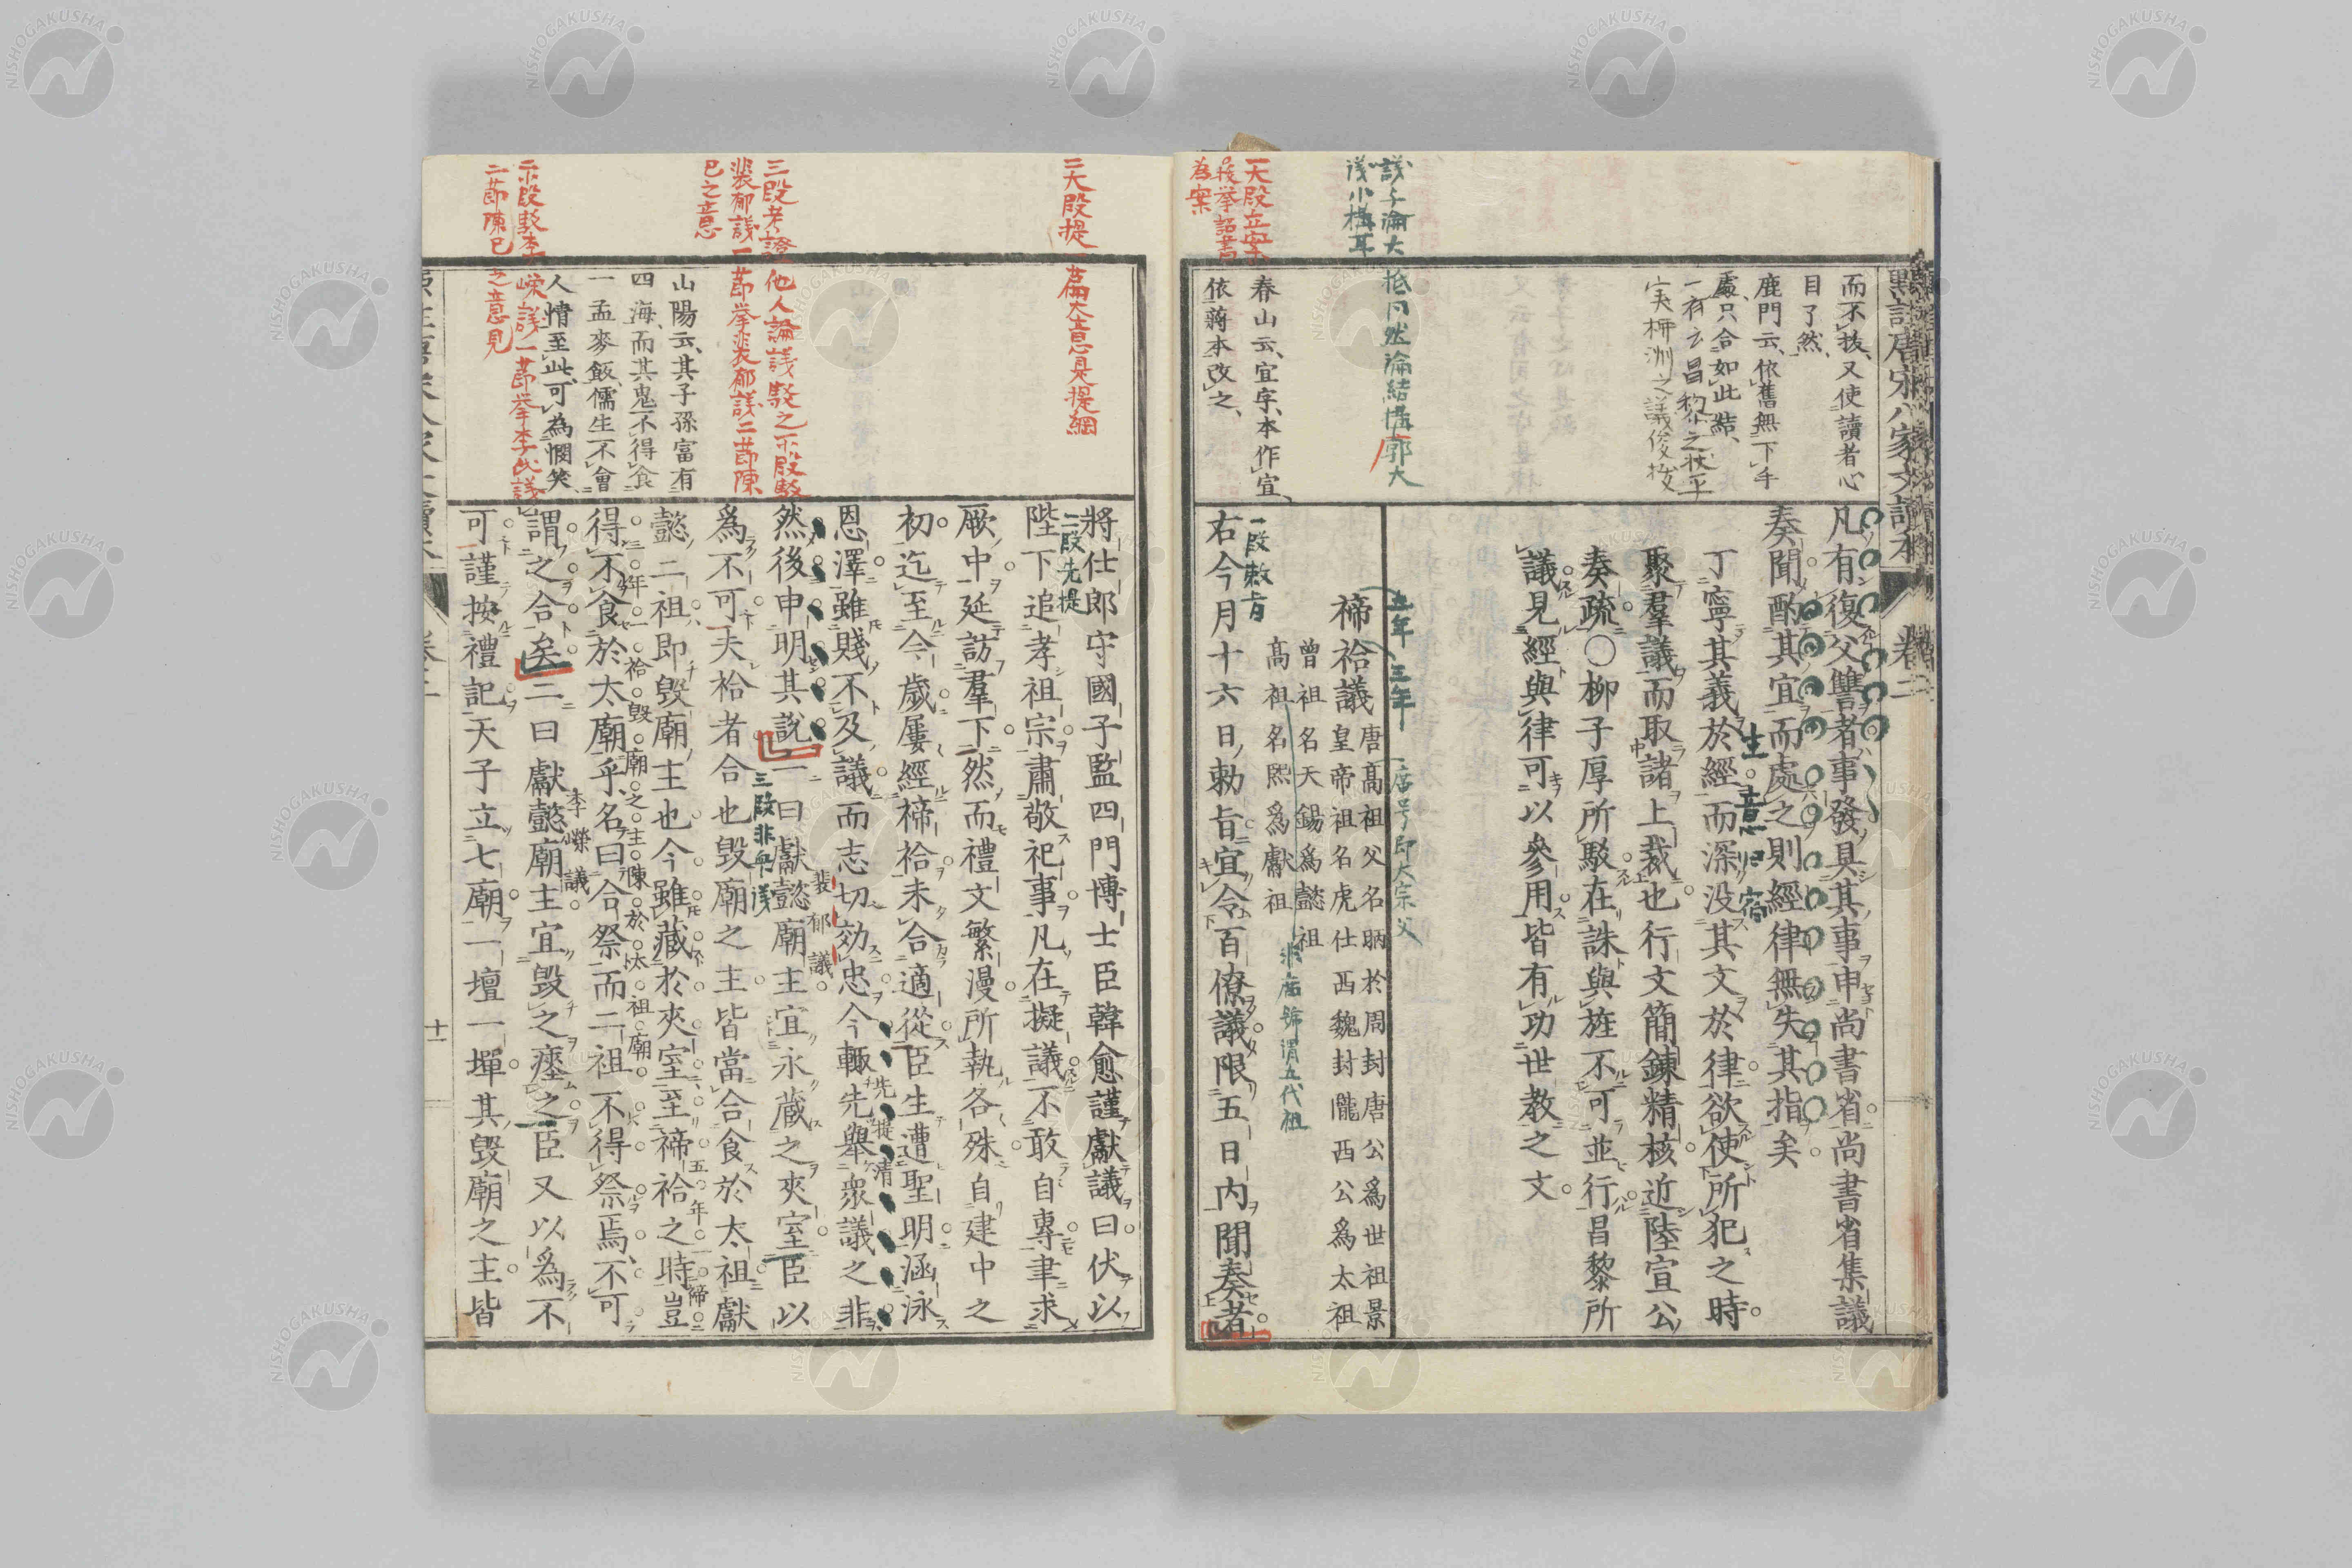 凡有復父讐者事發具其事申尚書省尚書省集議
奏聞酌其宜而處之則經律無失其指矣
丁寧其義於經而深沒其文於律欲使所犯之時
聚羣議而取諸上裁也行文簡鍊精核近陸宣公
奏疏〇柳子厚所駁在誅與旌不可並行昌黎所
議見經與律可以參用皆有功世教之文
禘祫議
唐高祖父名昞於周封唐公爲世祖景
皇帝祖名虎仕西魏封隴西公爲太祖
曾祖名天錫爲懿祖
高祖名熙爲獻祖
右今月十六日勅旨宜令百僚議限五日內聞奏者
而不抜又使讀者心
目了然
鹿門云依舊無下手
處只合如此結
春山云宜字本作宜
依蔣本改之
一大段立案
為案
一段敕旨
五年
三年
將仕郎守國子監四門博士臣韓愈謹獻議曰伏以
陛下追孝祖宗肅敬祀事凡在擬議不敢自專聿求
厥中延訪羣下然而禮文繁漫所執各殊自建中之
初迄至今歲屢經禘祫未合適從臣生遭聖明涵泳
恩澤雖賤不及議而志切効忠今輒先舉衆議之非
然後申明其說一曰獻懿廟主宜永藏之夾室臣以
爲不可夫祫者合也毀廟之主皆當合食於太祖獻
懿二祖卽毀廟主也今雖藏於夾室至禘祫之時豈
得不食於太廟乎名曰合祭而二祖不得祭焉不可
謂之合矣二曰獻懿廟主宜毀之瘞之臣又以爲不
可謹按禮記天子立七廟一壇一墠其毀廟之主皆
裴郁議
李嶸議
二大段提一篇大意是提綱
二段先提
三段老證他人論議駁之
裴郁議一節挙裴郁議二節陳
巳之意
山陽云其子孫富有
四海而其鬼不得食
一盂麥飯儒生不會
人情至此可為憫笑
二節陳巳之意見
十一
NISHOGAKUSHA